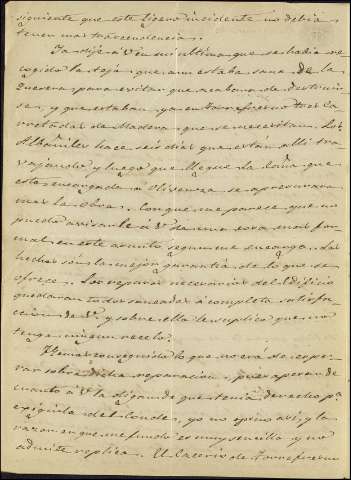 siguiente que este ligero incidente no debia
tener mas trascendencia.
Ya dije á V. en mi ultima que se habia re-
cogido la teja que aun estaba sana de la
Quesera para evitar que acabara de destruir
se, y que estaban ya en Torrefresno tres ca
rretadas de Madera que se necesitan. Los
Albañiles hace seis dias que están alli tra
vajando y luego que llegue la que
esta encargada á Olivenza se aprocsimara
mas la obra. Conque me parese que no
puedo avisarle á V. de una cosa mas for-
mal en este asunto segun me encarga. Los
hechos son la mejor garantia de lo que se
ofrece. Los reparos necesarios del Edificio
quedaran todos saneados á completa satisfac-
cion de V. y sobre ella le suplico que no
tenga ningun recelo.
Hemos conseguido lo que no era de espe-
rar sobre dicha reparacion, pues apesar de
cuanto á V. la digan de que tenia derecho pa
exigirla del Conde, yo no opino asi, y la
razon en que me fundo es muy sencilla y no
admite replica. El Caserio de Torrefresno